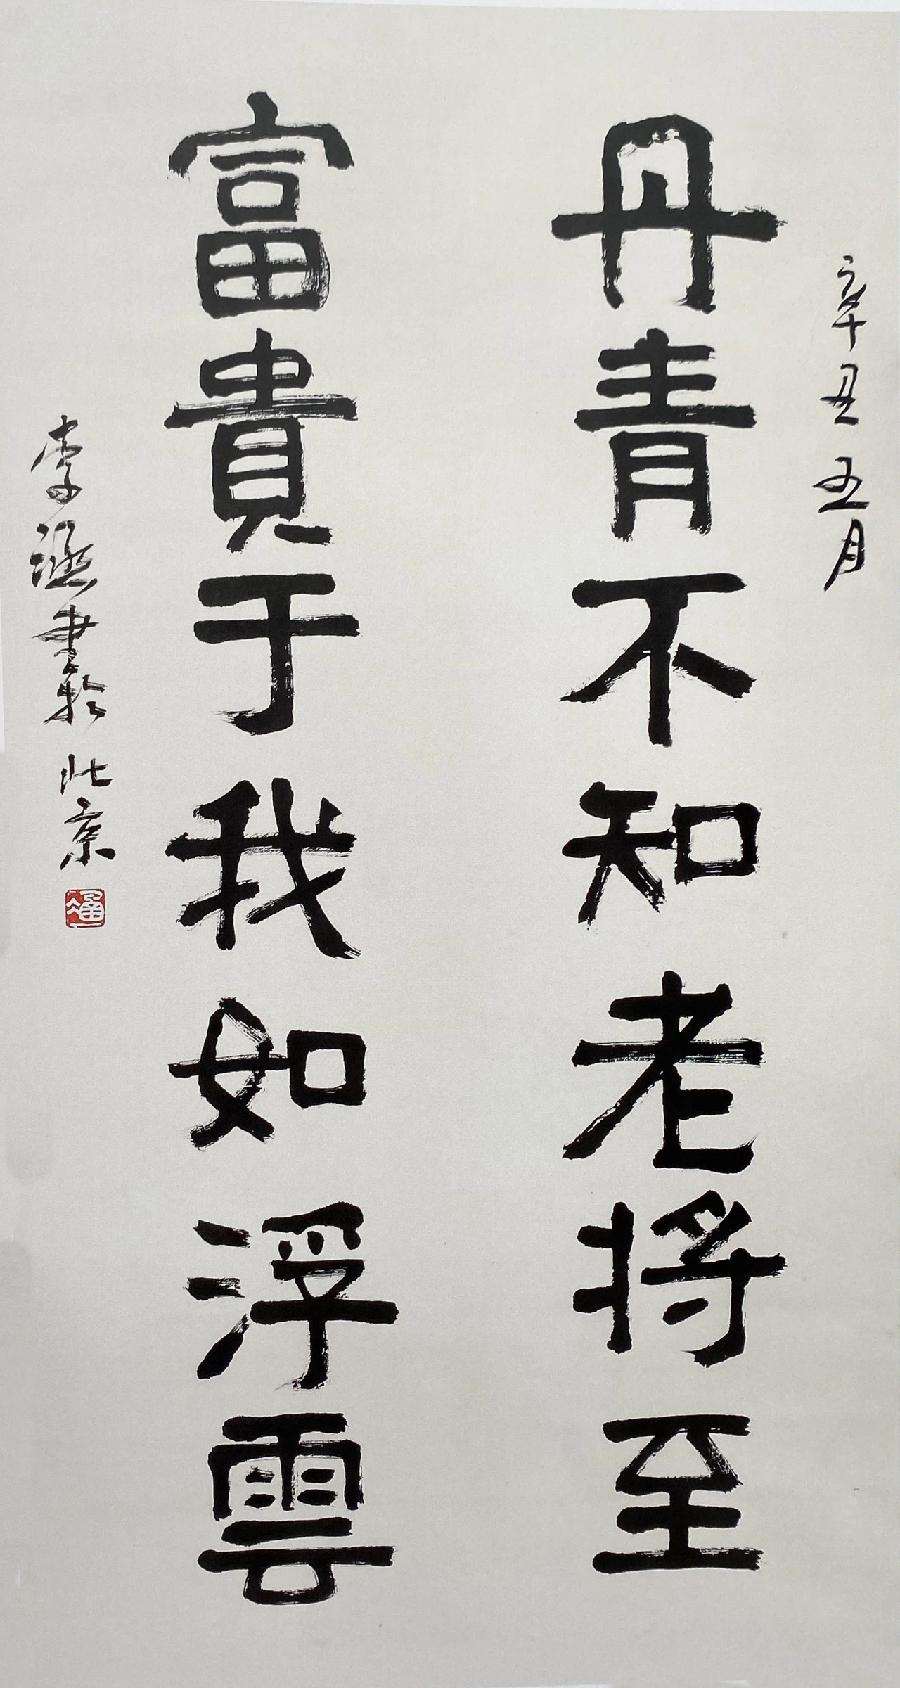 辛丑五月
丹青不知老将至
富貴于我如浮雲
李涵書於北京